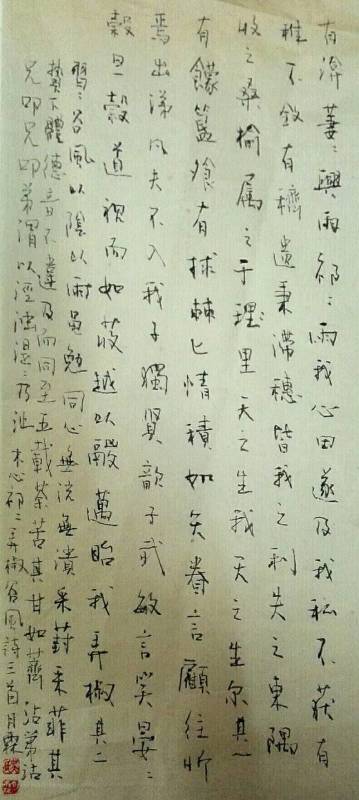 有渰萋〻興雨祁〻雨我心田遂及我私不获有
稚不敛有穧遗秉滞穗皆我之利失之東隅
收之桑榆属之于理里天之生我天之生尔其一
有饛簋飧有捄棘匕情積如矢眷言顧往昕
焉出涕凡夫不入我子獨賢歆子武敏言笑晏〻
穀旦穀道視而如荍越以鬷邁貽我弄椒其二
習〻谷風以陰以雨黾勉同心無洸無潰采葑采菲其
蓺下體德音不違及而同至五載荼苦其甘如薺沾弟沾
兄叩兄叩弟渭以涇濁湜〻乃沚 木心祁〻弄椒谷風詩三首月霖